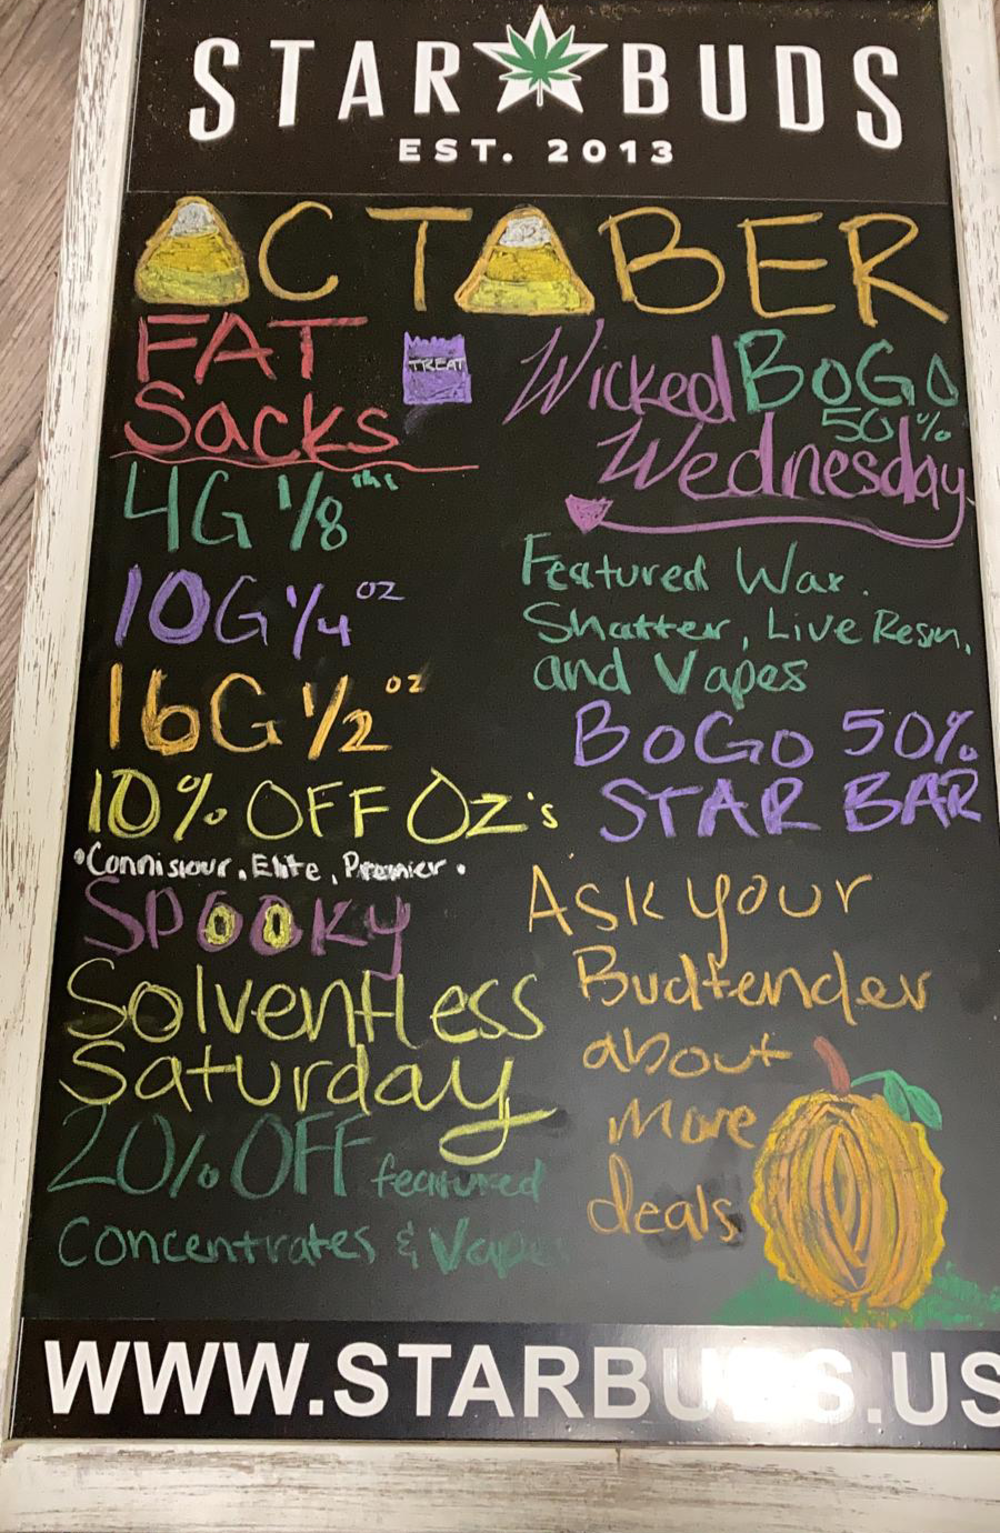 STAR BUDS
EST. 2013
OCTOBER
FAT
Sacks
TREAT
4G 1/8ths
10G 1/4 oz
16G 1/2 oz
10% OFF Oz's
•Connisiour, Elite, Premier.
SPOOKY
Solventless
Saturday
20% OFF featured
Concentrates & Vapes
Wicked BOGO
50%
Wednesday
Featured Wax.
Shatter, Live Resin,
and Vapes
BOGO 50%
STAR BAR
Ask your
Budtender
about
More
deals
WWW.STARBUDS.US